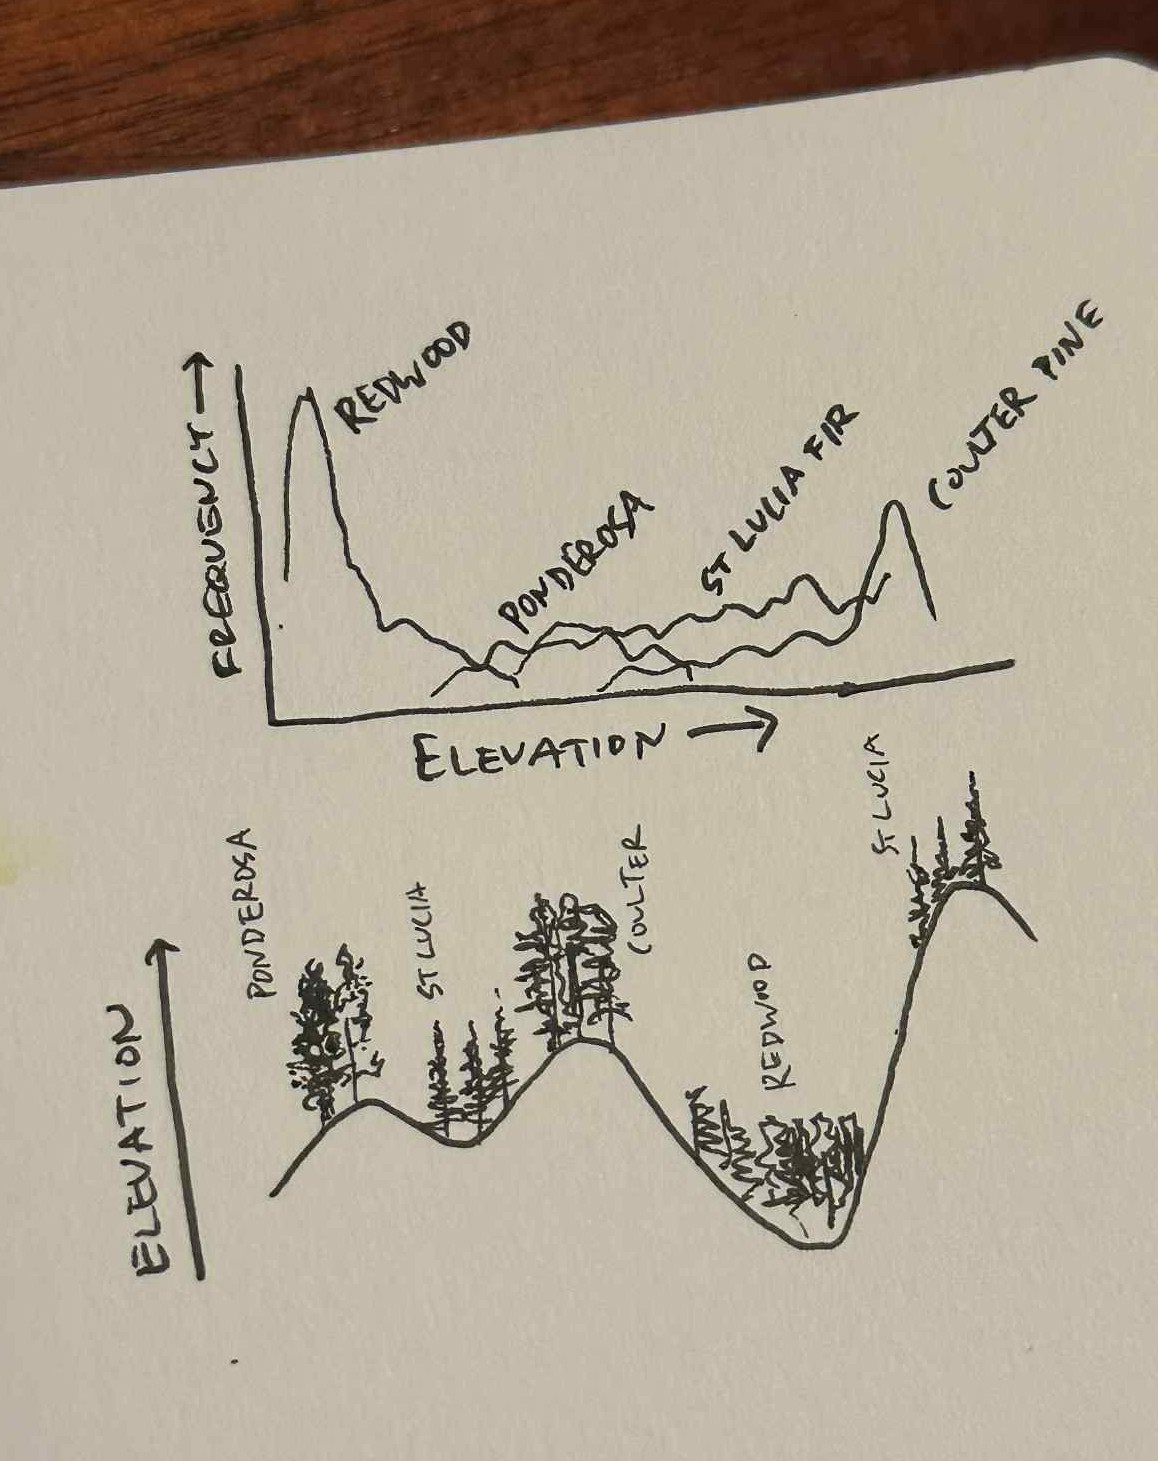 FREQUENCY
REDWOOD
PONDEROSA
ST LUCIA FIR
COULTER PINE
ELEVATION
ELEVATION
PONDEROSA
ST LUCIA
COULTER
REDWOOD
ST LUCIA